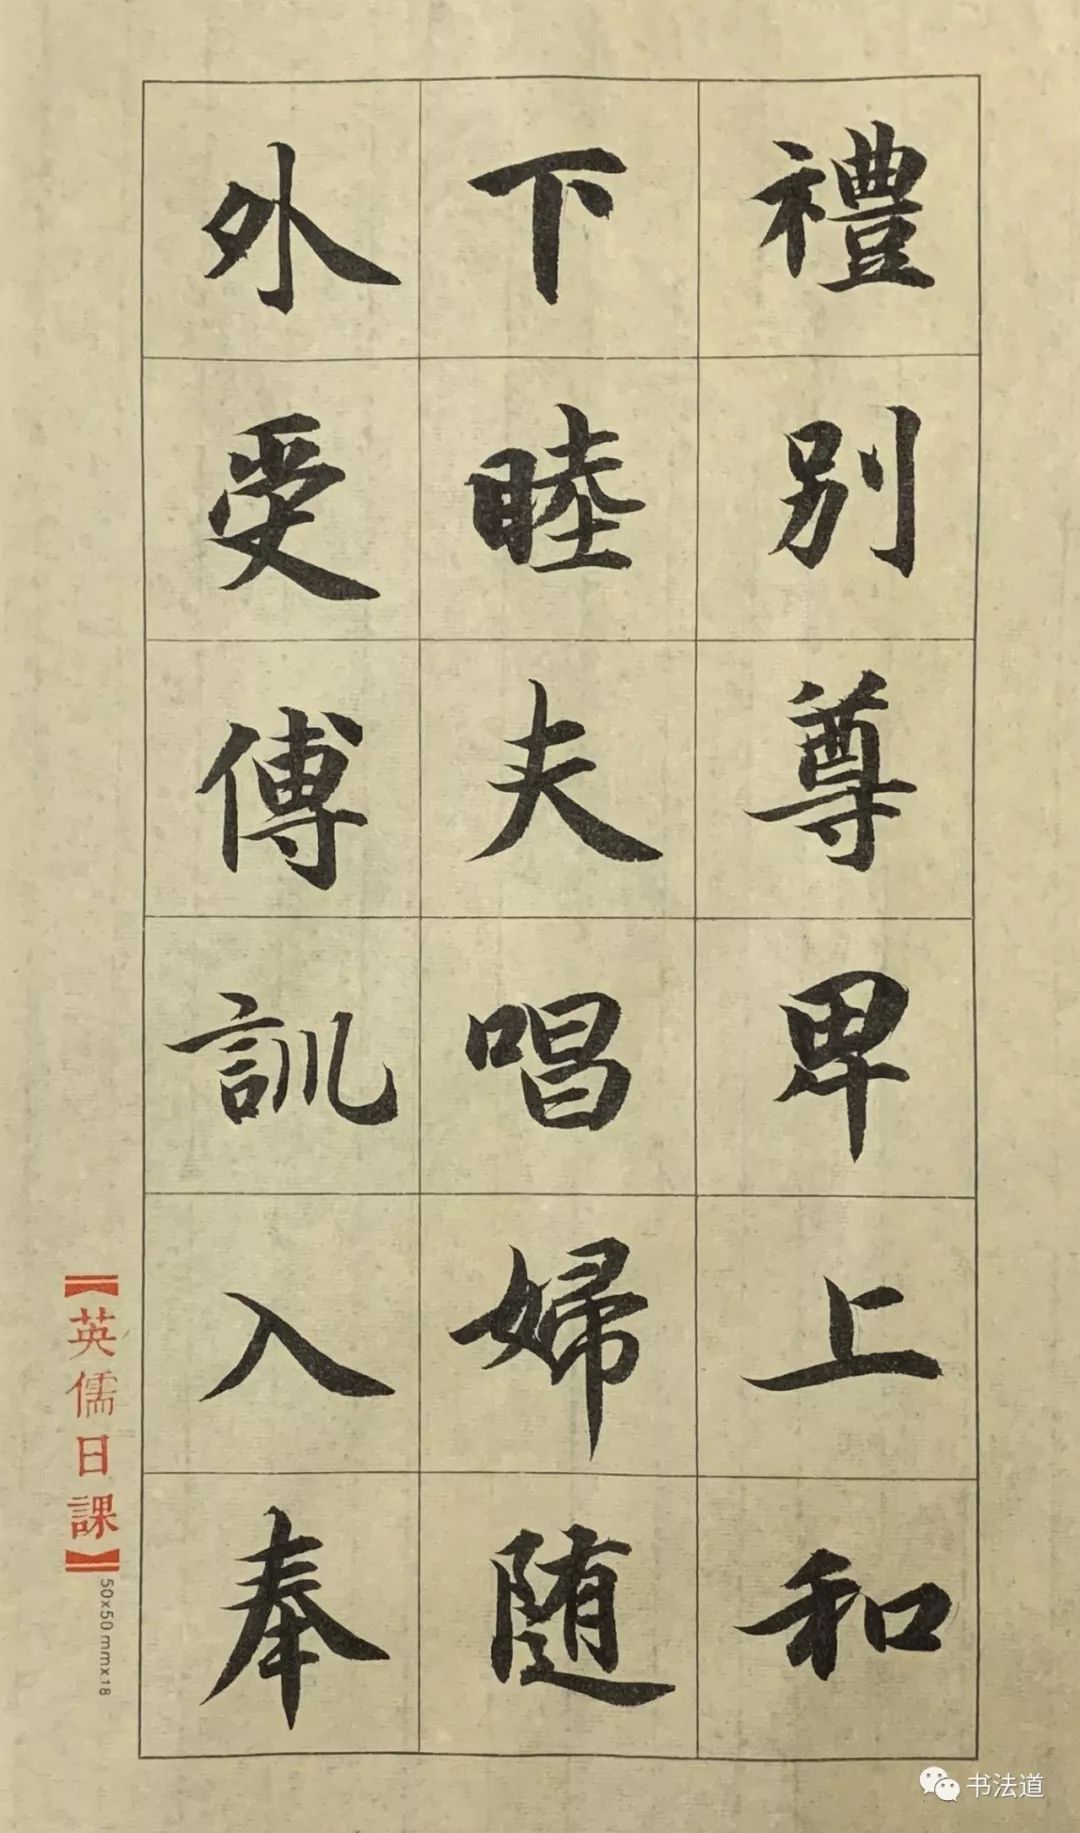 禮別尊卑上和
下睦夫唱婦随
外受傅訓入奉
【英儒日課】
50x50mmx18
书法道